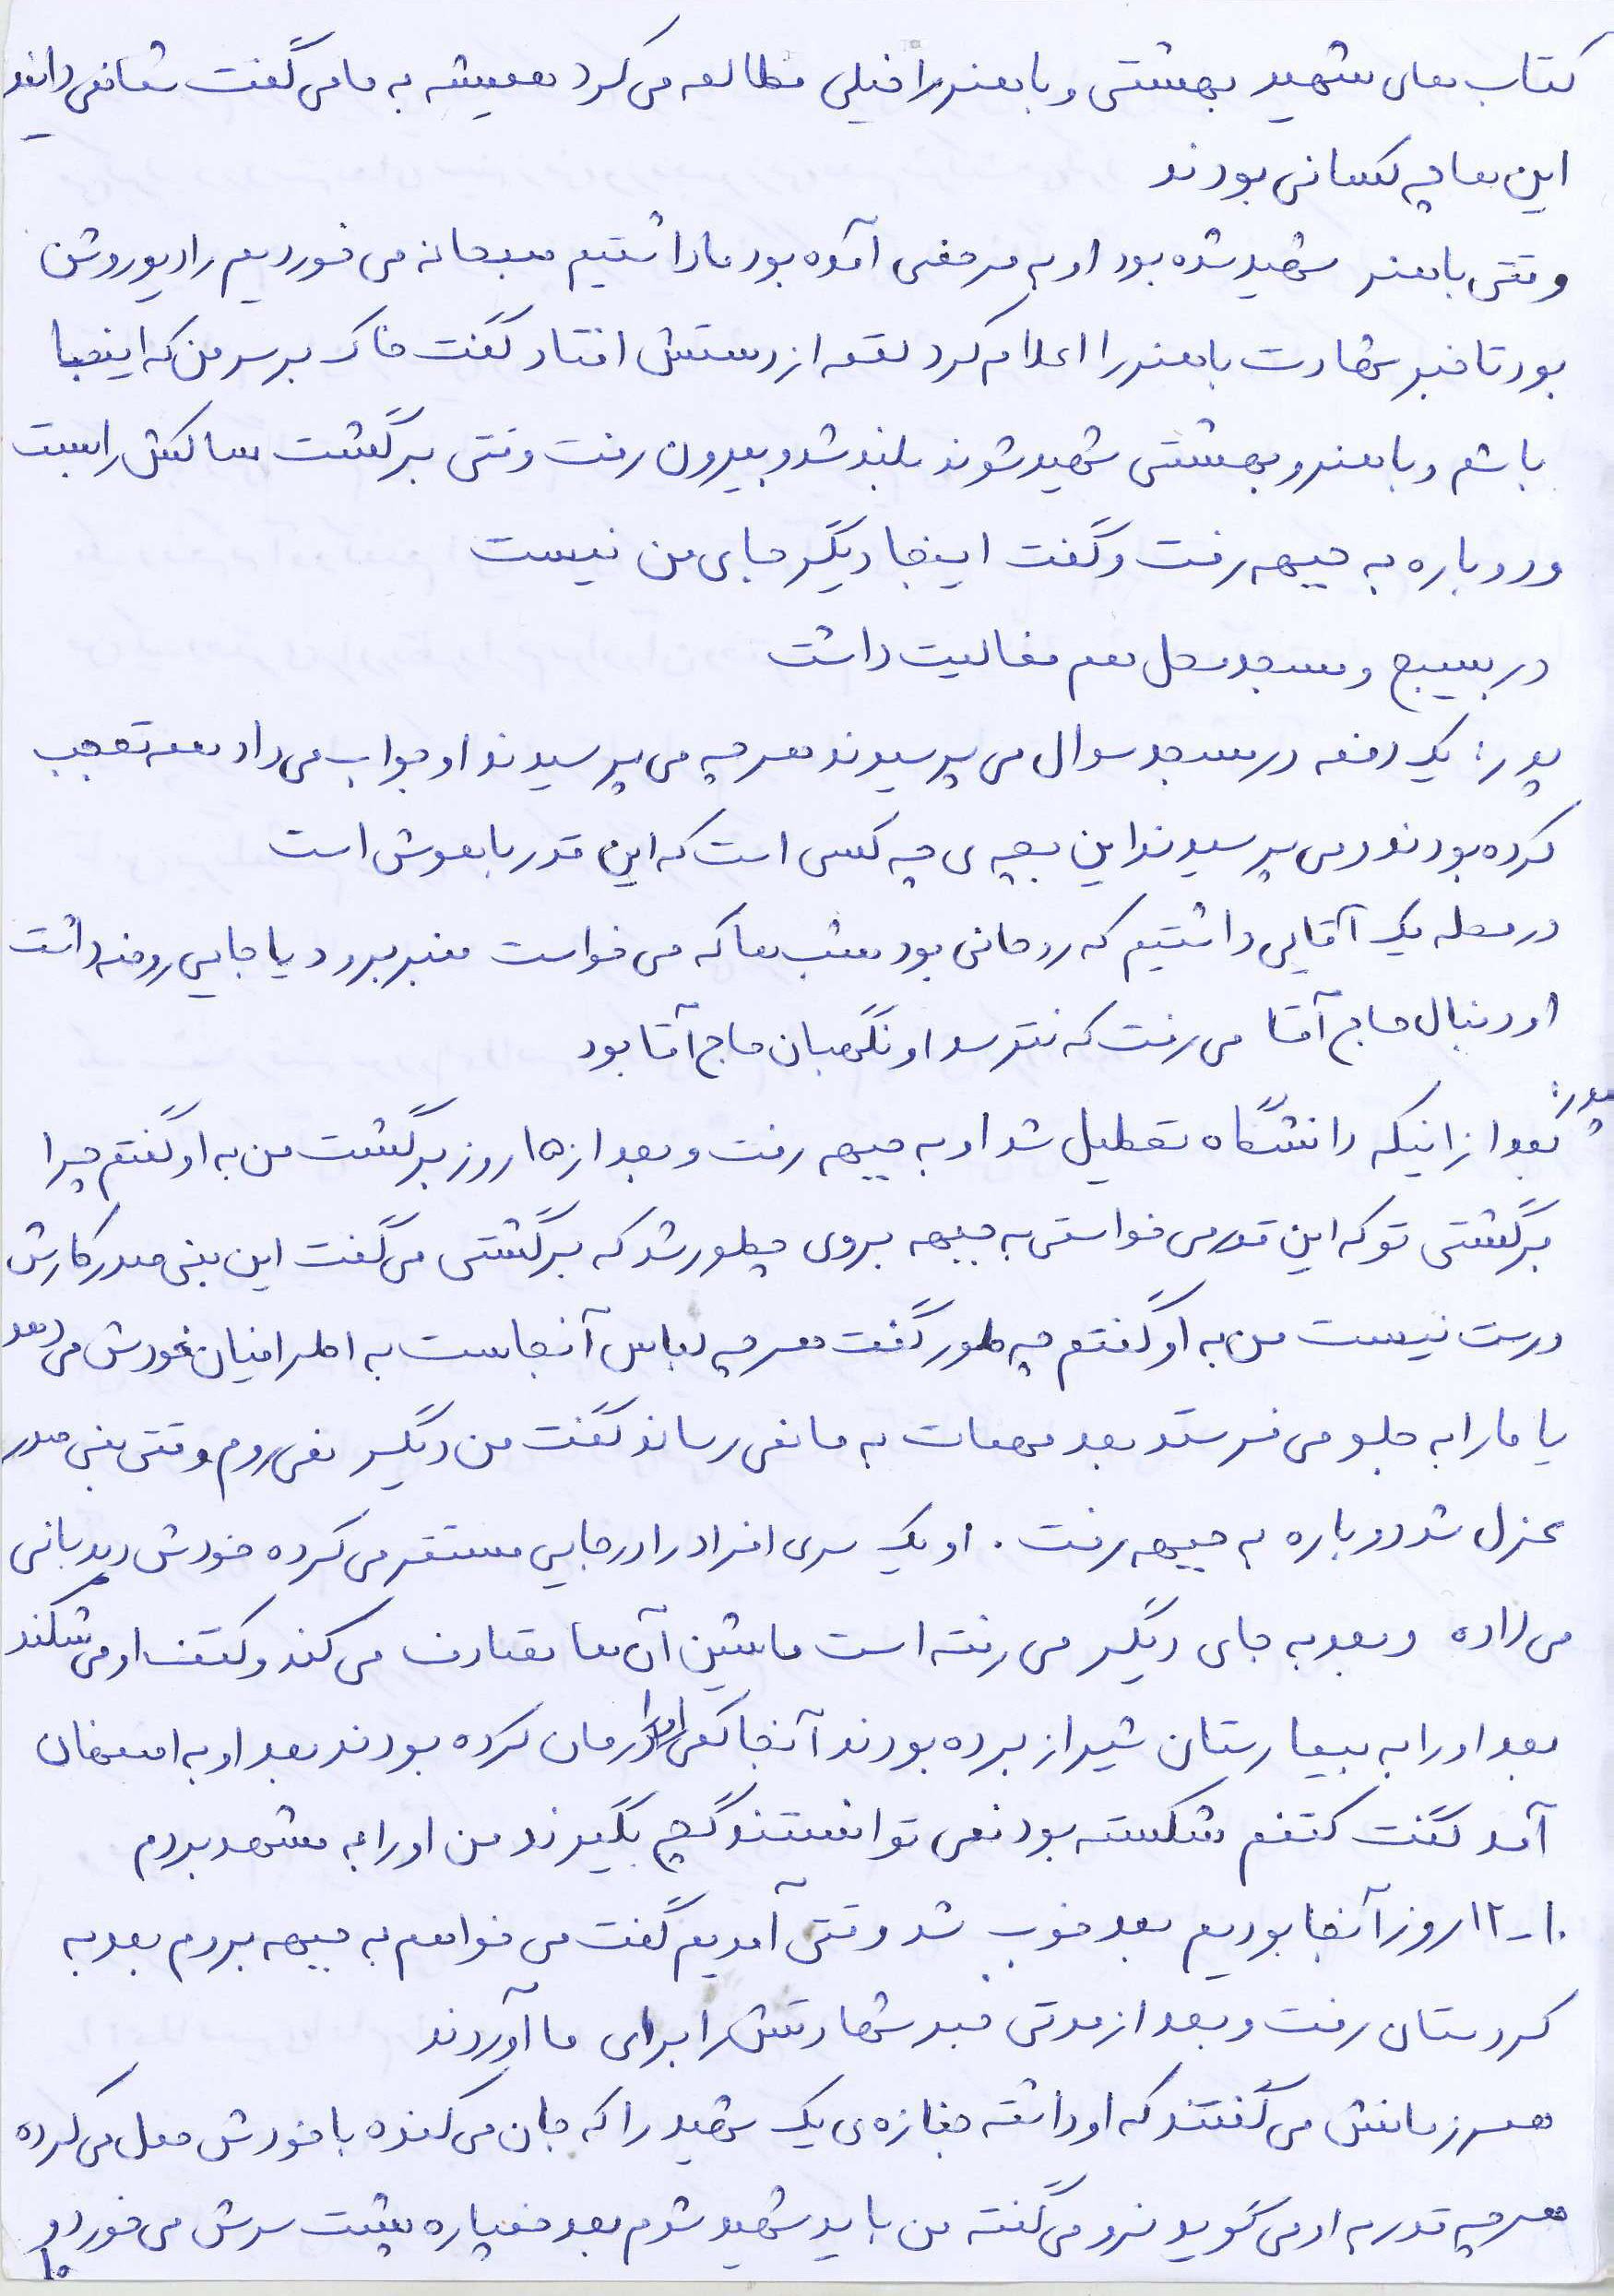 کتاب های شهید بهشتی و باهنر را خیلی مطالعه می کرد همیشه به ما می گفت شما نمی دانید
این ها چه کسانی بودند
وقتی باهنر شهید شده بود او به مرخصی آمده بود ما داشتیم صبحانه می خوردیم رادیو روشن
بود تا خبر شهادت باهنر را اعلام کرد لقمه از دستش افتاد گفت خاک بر سر من که اینجا
باشم و باهنر و بهشتی شهید شوند بلند شد و بیرون رفت وقتی برگشت ساکش را بست
و دوباره به جبهه رفت و گفت اینجا دیگر جای من نیست
در بسیج و مسجد محل هم فعالیت داشت
پدر: یک دفعه در مسجد سوال می پرسیدند هر چه می پرسیدند او جواب می داد همه تعجب
کرده بودند و می پرسیدند این بچه ی چه کسی است که این قدر باهوش است
در محله یک آقایی داشتیم که روحانی بود شب ها که می خواست منبر برود یا جایی روضه داشت
او دنبال حاج آقا می رفت که نترسد او نگهبان حاج آقا بود
پدر: بعد از اینکه دانشگاه تعطیل شد او به جبهه رفت و بعد از ۱۵ روز برگشت من به او گفتم چرا
برگشتی تو که این قدر می خواستی به جبهه بروی چطور شد که برگشتی می گفت این بنی صدر کارش
درست نیست من به او گفتم چه طور گفت هر چه لباس آنجاست به اطرافیان خودش می دهد
یا ما را به جلو می فرستد بعد مهمات به ما نمی رساند گفت من دیگر نمی روم وقتی بنی صدر
عزل شد دوباره به جبهه رفت . او یک سری افراد را در جایی مستقر می کرده خودش دیدبانی
می داده و بعد به جای دیگر می رفته است ماشین آن ها تصادف می کند و کتف او می شکند
بعد او را به بیمارستان شیراز برده بودند آنجا کمی او را درمان کرده بودند بعد او به اصفهان
آمد گفت کتفم شکسته بود نمی توانستند گچ بگیرند من او را به مشهد بردم
۱۰-۱۲ روز آنجا بودیم بعد خوب شد وقتی آمدیم گفت می خواهم به جبهه بروم بعد به
کردستان رفت و بعد از مدتی خبر شهادتش را برای ما آوردند
همرزمانش می گفتند که او داشته جنازه ی یک شهید را که جان می کنده با خودش حمل می کرده
هر چه قدر به او می گوید نرو می گفته من باید شهید شوم بعد خمپاره پشت سرش می خورد و
۱۰